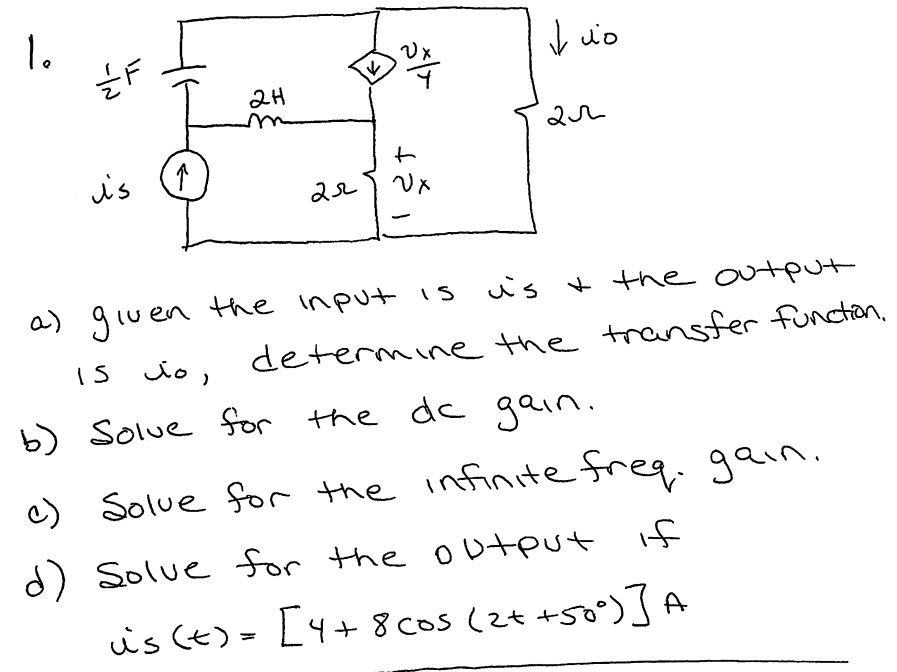 1.
↓ io
1/2 F
Vx/4
2H
2Ω
+
is
2Ω
Vx
−
a) given the input is is + the output
is io, determine the transfer function.
b) Solve for the dc gain.
c) Solve for the infinite freq. gain.
d) Solve for the output if
is(t) = [4 + 8 cos (2t + 50°)] A